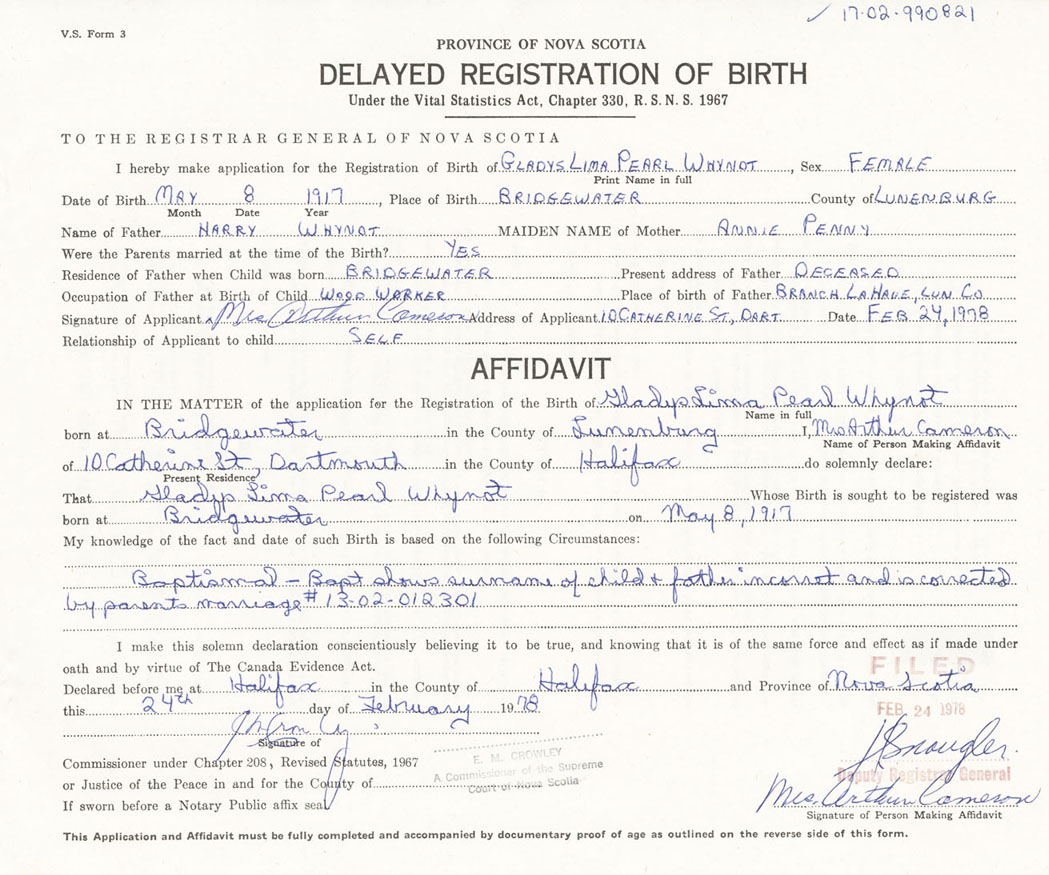 ✓ 17-02-990821
V.S. Form 3
PROVINCE OF NOVA SCOTIA
DELAYED REGISTRATION OF BIRTH
Under the Vital Statistics Act, Chapter 330, R. S. N. S. 1967
TO THE REGISTRAR GENERAL OF NOVA SCOTIA
I hereby make application for the Registration of Birth of GLADYS LIMA PEARL WHYNOT, Sex FEMALE
Print Name in full
Date of Birth MAY 8 1917, Place of Birth BRIDGEWATER County of LUNENBURG
Month Date Year
Name of Father HARRY WHYNOT MAIDEN NAME of Mother ANNIE PENNY
Were the Parents married at the time of the Birth? YES
Residence of Father when Child was born BRIDGEWATER Present address of Father DECEASED
Occupation of Father at Birth of Child WOOD WORKER Place of birth of Father BRANCH LAHAVE, LUN CO
Signature of Applicant x Mrs Arthur Cameron Address of Applicant 10 CATHERINE ST, DART. Date FEB 24, 1978
Relationship of Applicant to child SELF
AFFIDAVIT
IN THE MATTER of the application for the Registration of the Birth of Gladys Lima Pearl Whynot
Name in full
born at Bridgewater in the County of Lunenburg I, Mrs Arthur Cameron
Name of Person Making Affidavit
of 10 Catherine St, Dartmouth in the County of Halifax do solemnly declare:
Present Residence
That Gladys Lima Pearl Whynot Whose Birth is sought to be registered was
born at Bridgewater on May 8, 1917
My knowledge of the fact and date of such Birth is based on the following Circumstances:
Baptismal - Bapt shows surname of child & father incorrot and is corrected
by parents marriage # 13-02-012301
I make this solemn declaration conscientiously believing it to be true, and knowing that it is of the same force and effect as if made under
oath and by virtue of The Canada Evidence Act.
FILED
Declared before me at Halifax in the County of Halifax and Province of Nova Scotia
this 24th day of February 1978
FEB 24 1978
Signature of
Commissioner under Chapter 208, Revised Statutes, 1967
E. M. CROWLEY
A Commissioner of the Supreme
Court of Nova Scotia
Deputy Registrar General
or Justice of the Peace in and for the County of
Mrs. Arthur Cameron
If sworn before a Notary Public affix seal
Signature of Person Making Affidavit
This Application and Affidavit must be fully completed and accompanied by documentary proof of age as outlined on the reverse side of this form.